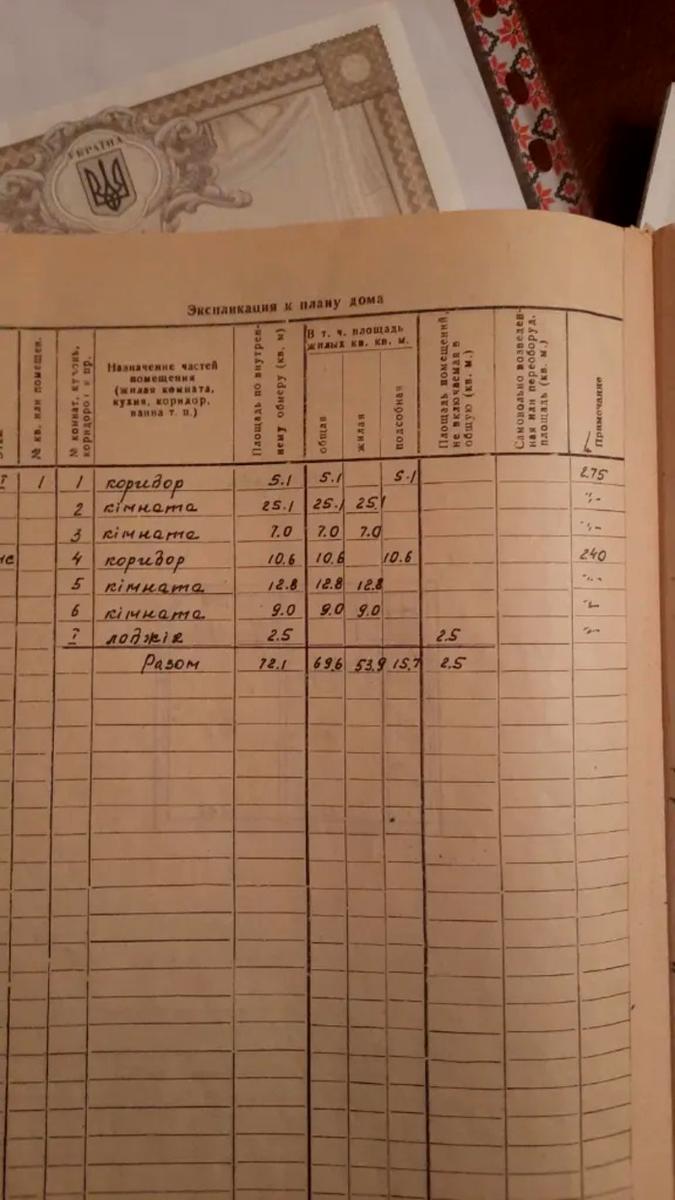 УКРАЇНА
Экспликация к плану дома
№ кв. или помещен.
№ комнат, кухонь, коридоров и пр.
Назначение частей помещения (жилая комната, кухня, коридор, ванна т. п.)
Площадь по внутреннему обмеру (кв. м)
В т. ч. площадь жилых кв. кв. м.
общая
жилая
подсобная
Площадь помещений, не включаемая в общую (кв. м.)
Самовольно возведенная или переоборуд. площадь (кв. м.)
Примечание
I 1 1 коридор 5.1 5.1 5.1 275
2 кімната 25.1 25.1 25.1 "-
3 кімната 7.0 7.0 7.0 "-
4 коридор 10.6 10.6 10.6 240
5 кімната 12.8 12.8 12.8 "-
6 кімната 9.0 9.0 9.0 "-
I лоджія 2.5 2.5 "-
Разом 72.1 69.6 53.9 15.7 2.5